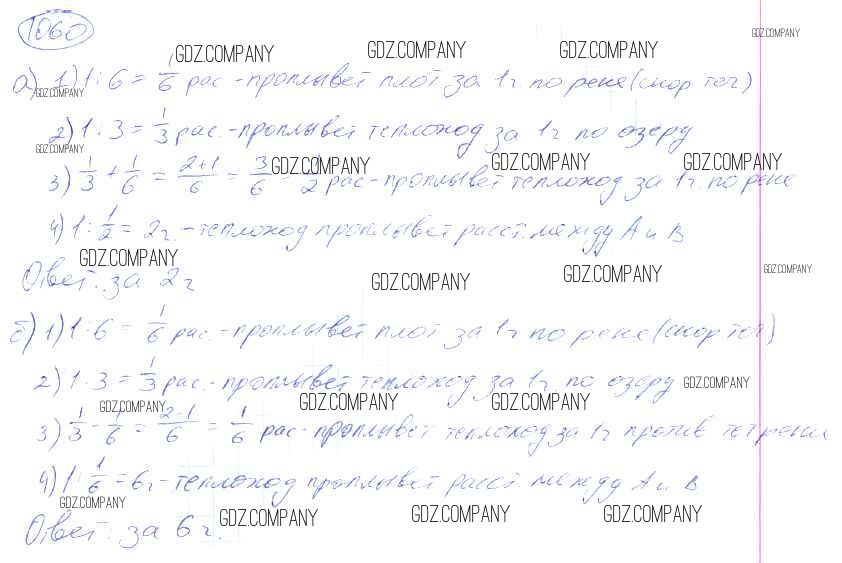 1060
GDZ.COMPANY
GDZ.COMPANY GDZ.COMPANY GDZ.COMPANY
а) 1) 1 : 6 = 1/6 рас - проплывет плот за 1 ч по реке (скор теч)
GDZ.COMPANY
2) 1 : 3 = 1/3 рас. - проплывет теплоход за 1 ч. по озеру
GDZ.COMPANY
GDZ.COMPANY GDZ.COMPANY GDZ.COMPANY
3) 1/3 + 1/6 = 2+1/6 = 3/6 = 1/2 рас - проплывет теплоход за 1 ч. по реке
4) 1 : 1/2 = 2 ч. - теплоход проплывет расст. между А и В
GDZ.COMPANY
Ответ: за 2 ч
GDZ.COMPANY GDZ.COMPANY GDZ.COMPANY
б) 1) 1 : 6 = 1/6 рас. - проплывет плот за 1 ч по реке (скор теч)
2) 1 : 3 = 1/3 рас. - проплывет теплоход за 1 ч. по озеру
GDZ.COMPANY
GDZ.COMPANY GDZ.COMPANY GDZ.COMPANY
3) 1/3 - 1/6 = 2-1/6 = 1/6 рас - проплывет теплоход за 1 ч против
4) 1 : 1/6 = 6 ч - теплоход проплывет расст. между А и В
GDZ.COMPANY
GDZ.COMPANY GDZ.COMPANY GDZ.COMPANY
Ответ: за 6 ч.